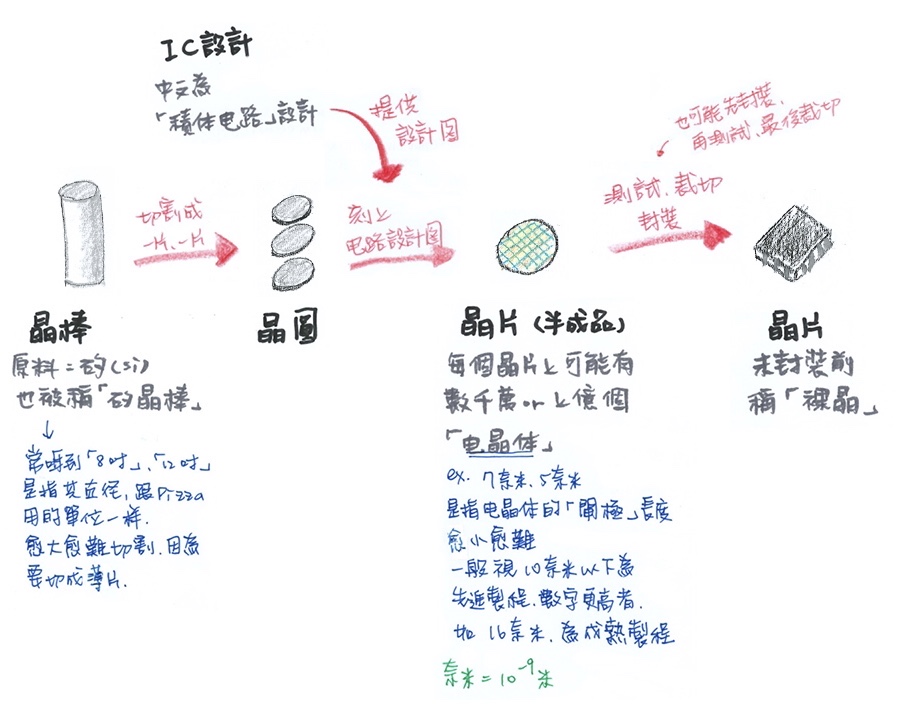 IC設計
中文為
「積体电路」設計
提供
設計圖
也可能先封裝、
再測試、最後裁切
切割成
一片、一片
刻上
电路設計圖
測試、裁切
封裝
晶棒
原料=矽(Si)
也被稱「矽晶棒」
↓
常聽到「8吋」、「12吋」
是指其直徑,跟Pizza
用的單位一样.
愈大愈難切割.因為
要切成薄片.
晶圓
晶片(半成品)
每個晶片上可能有
數千萬or上億個
「电晶体」
ex. 7奈米、5奈米
是指电晶体的「閘極」長度
愈小愈難
一般視10奈米以下為
先進製程.數字更高者.
如16奈米.為成熟製程
奈米=10⁻⁹米
晶片
未封裝前
稱「裸晶」